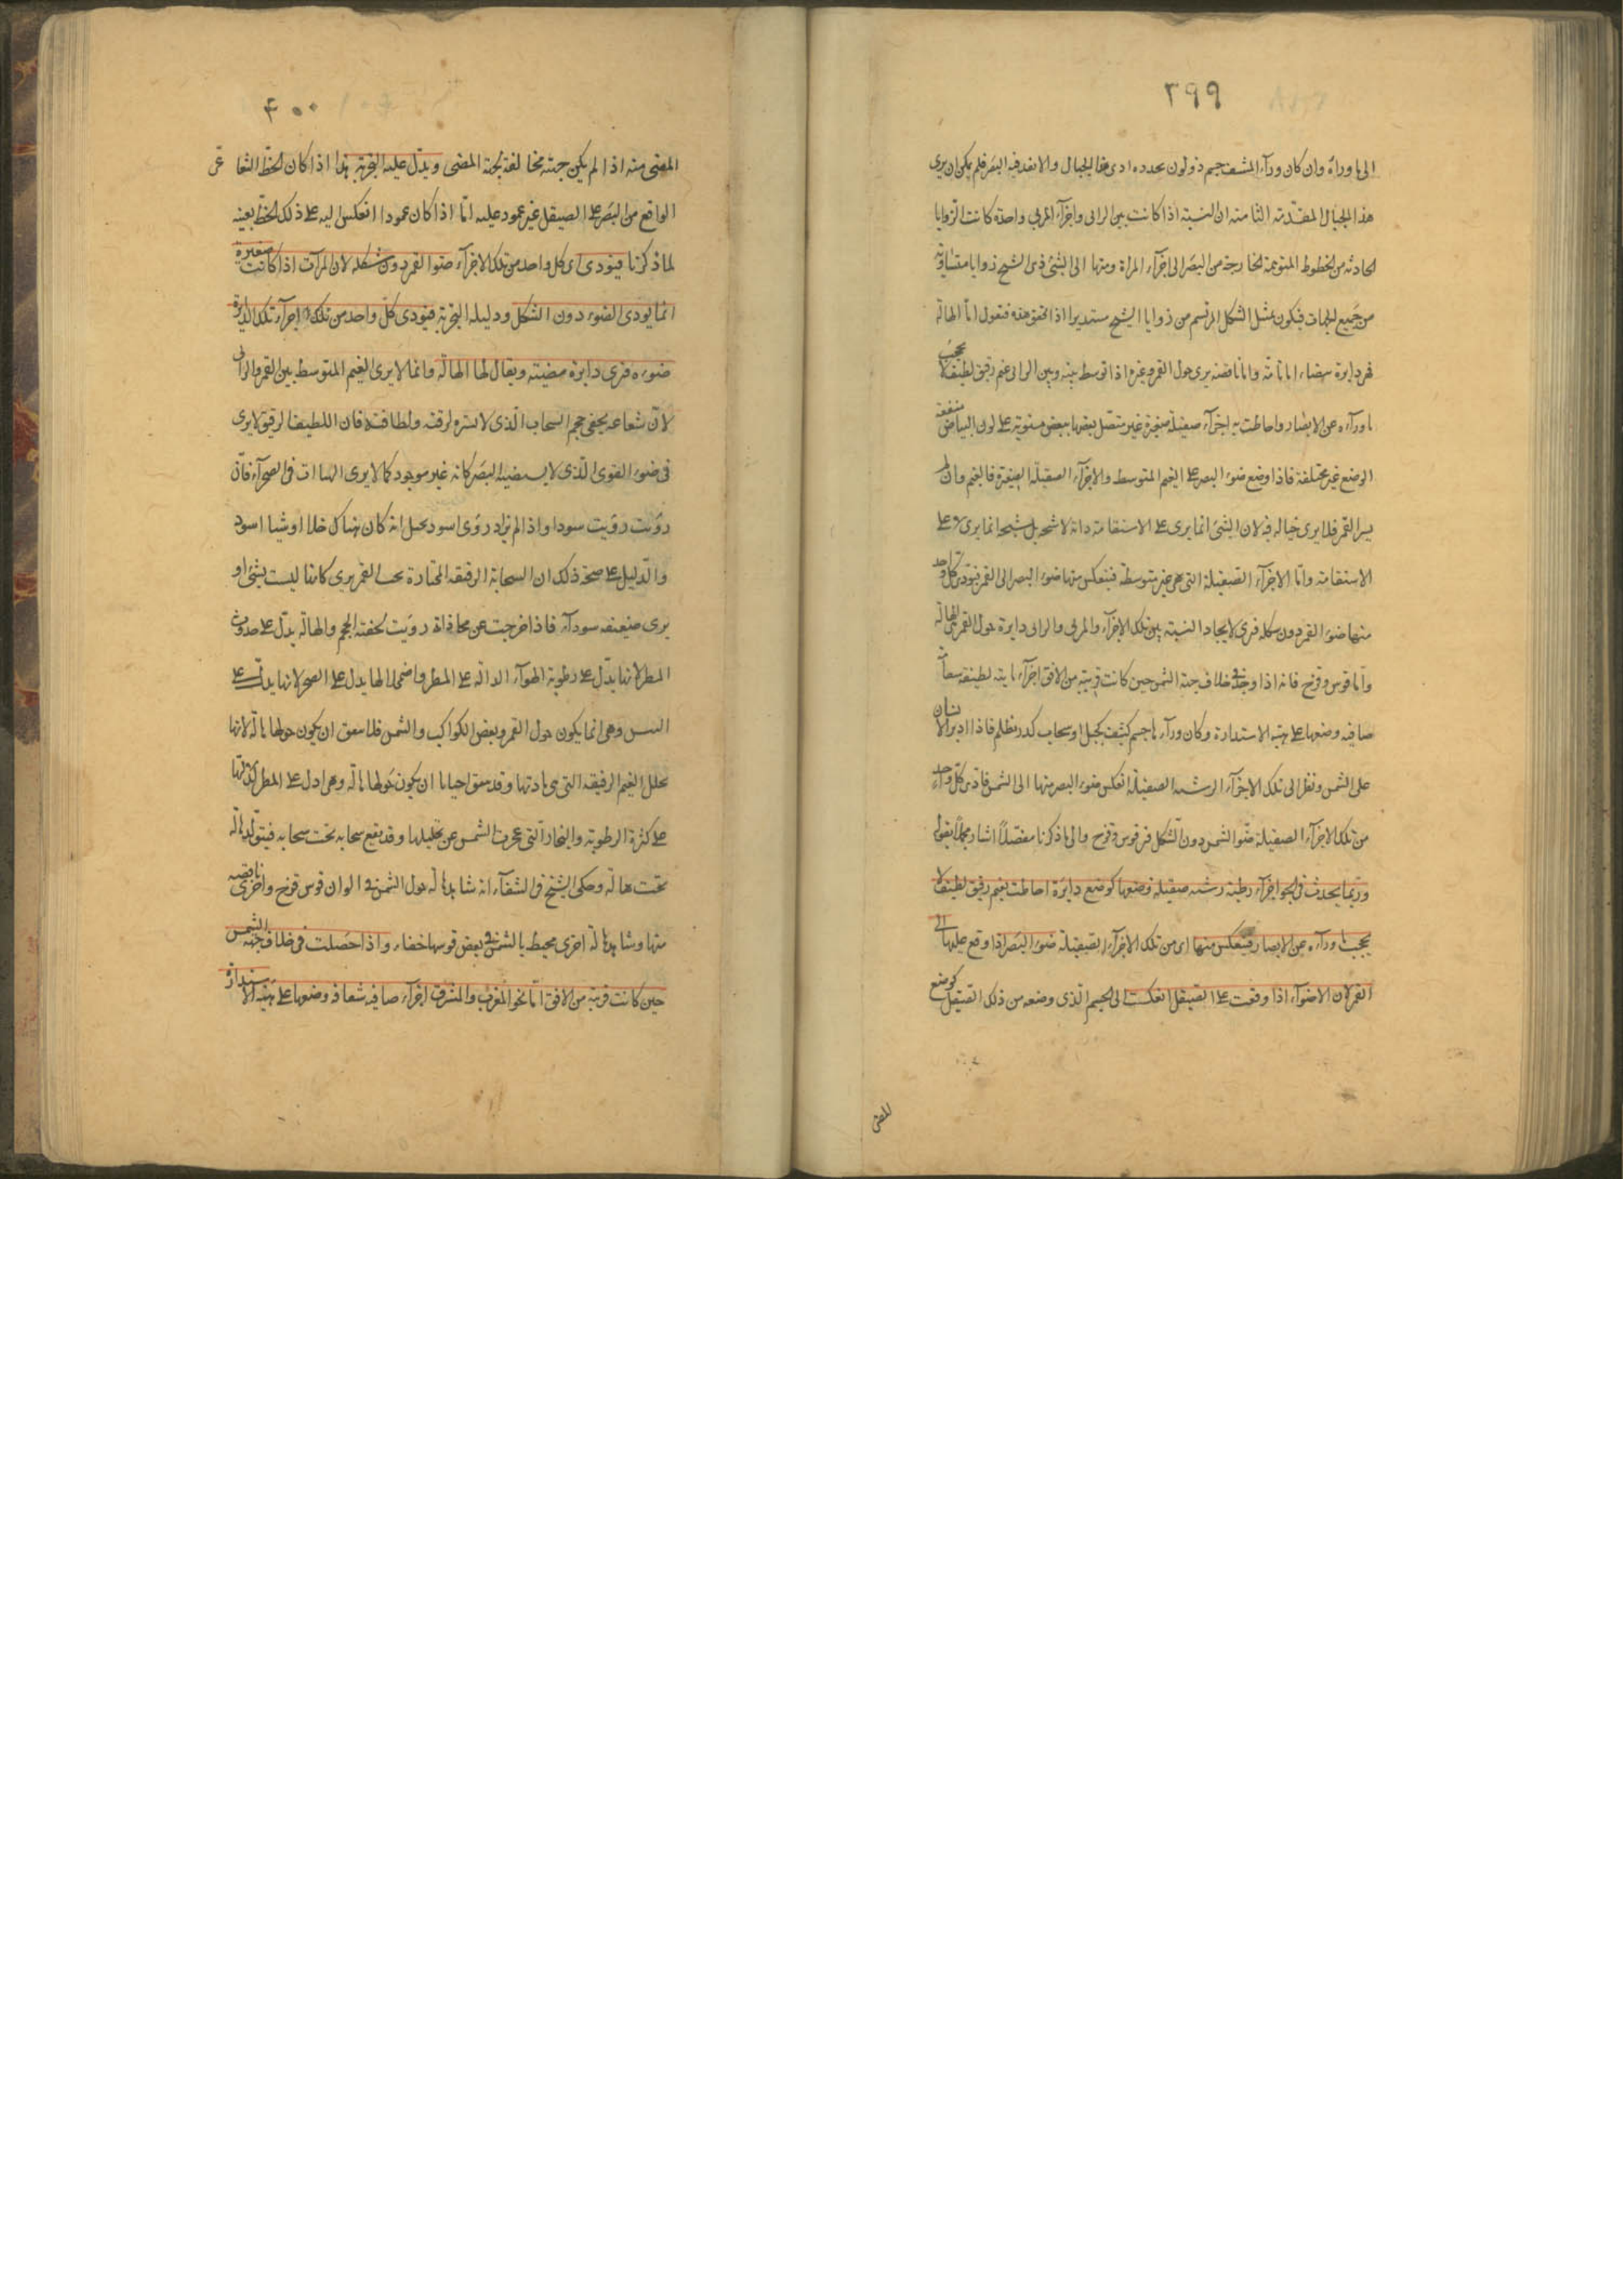 ٣٩٩
الى ما وراءه وان كان وراء المشف جسم ذو لون يحدده ادى هذا الخيال والا نفذ فيه البصر فلم يكن ان يرى
هذا الخيال المقدمة الثامنة ان النسبة اذا كانت بين الرائى واجزآء المرئى واحدة كانت الزوايا
الحادثة من الخطوط المتوهمة الخارجة من البصر الى اجزآء المرآة ومنها الى الشئ ذى الشبح زوايا متساوية
من جميع الجهات فيكون شكل المرتسم من زوايا الشبح مستديرا اذا تحقق هذه فنقول اما الهالة
فهى دايرة بيضاء اما تامة واما ناقصة يرى حول القمر وغيره اذا توسط بينه وبين الرائى غيم رقيق لطيف لا يحجب
ما ورآءه عن الابصار واحاطت به اجزآء صقيلة صغيرة غير متصل بعضها ببعض مستوية على لون البياض متفقة
الوضع غير مختلفة فاذا وقع ضوء البصر على الغيم المتوسط والاجزآء الصقيلة الصغيرة فالغيم وان لم
يستر القمر فلا يرى خياله فيه لان الشئ انما يرى على الاستقامة ذاته لا شبحه بل شبحه انما يرى لا على
الاستقامة واما الاجزآء الصقيلة التى هى غير متوسطة فينعكس منها ضوء البصر الى القمر فيؤدى كل واحد
منها ضوء القمر دون شكله فيرى لايجاد النسبة بين تلك الاجزآء والمرئى والرائى دايرة حول القمر هى الهالة
واما قوس وقزح فانه اذا وجد فى خلاف جهة الشمس حين كانت قريبة من الافق اجزآء مائية لطيفة شفافة
صافية وضعها على هيئة الاستدارة وكان ورآءها جسم كثيف كجبل او سحاب كدر مظلم فاذا ادبر الانسان
على الشمس ونظر الى تلك الاجزآء الرشية الصقيلة انعكس ضوء البصر منها الى الشمس فادى كل واحد
من تلك الاجزآء الصقيلة ضوء الشمس دون الشكل فيرى قوس وقزح والى ما ذكرنا مفصلا اشار مجملا بقوله
وربما يحدث فى الجو اجزآء رطبة رشية صقيلة وضعها كوضع دايرة احاطت بغيم رقيق لطيف لا
يحجب ما ورآءه عن الابصار فينعكس منها اى من تلك الاجزآء الصقيلة ضوء البصر اذا وقع عليها الى
القمر لان الاضوآء اذا وقعت على الصيقل انعكست الى الجسم الذى وضعه من ذلك الصيقل كوضع
للمضئ
٤٠٠
المضئ منه اذا لم يكن جهته مخالفة لجهة المضئ ويدل عليه التجربة هذا اذا كان الخط الشعاعى
الواقع من البصر على الصيقل غير عمود عليه اما اذا كان عمودا انعكس اليه على ذلك الخط بعينه
لما ذكرنا فيؤدى اى كل واحد من تلك الاجزآء ضوء القمر دون شكله لان المرآت اذا كانت صغيرة
انما يؤدى الضوء دون الشكل ودليله التجربة فيؤدى كل واحد من تلك اجزآء تلك الدايرة
ضوءه فيرى دايرة مضيئة ويقال لها الهالة وانما لا يرى الغيم المتوسط بين القمر والرائى
لان شعاعه يخفى حجم السحاب الذى لا يستره لرقته ولطافته فان اللطيف الرقيق لا يرى
فى ضوء القوى الذى لا يستضيئه البصر كانه غير موجود كما لا يرى الهباآت فى الصحرآء فان
رؤيت رؤيت سودا واذا لم يرى اسود تخيل انه كان هناك خلا او شيئا اسود
والدليل على صحة ذلك ان السحابة الرقيقة المختارة تحت القمر يرى كانها ليست بشئ او
يرى ضعيفة سودآء فاذا خرجت عن محاذاته رؤيت الحجم والهالة يدل على حدوث
المطر لانها يدل على رطوبة الهوآء الدالة على المطر واضمحلالها يدل على الصحو لانها يدل على
اليبس وهى انما يكون حول القمر وبعض الكواكب والشمس قلما يتفق ان يكون حولها هالة لانها
تحلل الغيم الرقيقة التى هى مادتها وقد يتفق احيانا ان يكون حولها هالة وهى ادل على المطر لدلالتها
على كثرة الرطوبة والبخار التى عجزت الشمس عن تحليلها وقد يقع سحابة تحت سحابة فيتولد هالة
تحت هالة وحكى الشيخ فى الشفآء انه شاهد هالة حول الشمس فى الوان قوس قزح واخرى ناقصة
منها وشاهد هالة اخرى محيط بالشمس فى بعض قوسها خفاء واذا حصلت فى خلاف جهة الشمس
حين كانت قريبة من الافق اما نحو المغرب والمشرق اجزآء صافية شفافة وضعها على هيئة الاستدارة